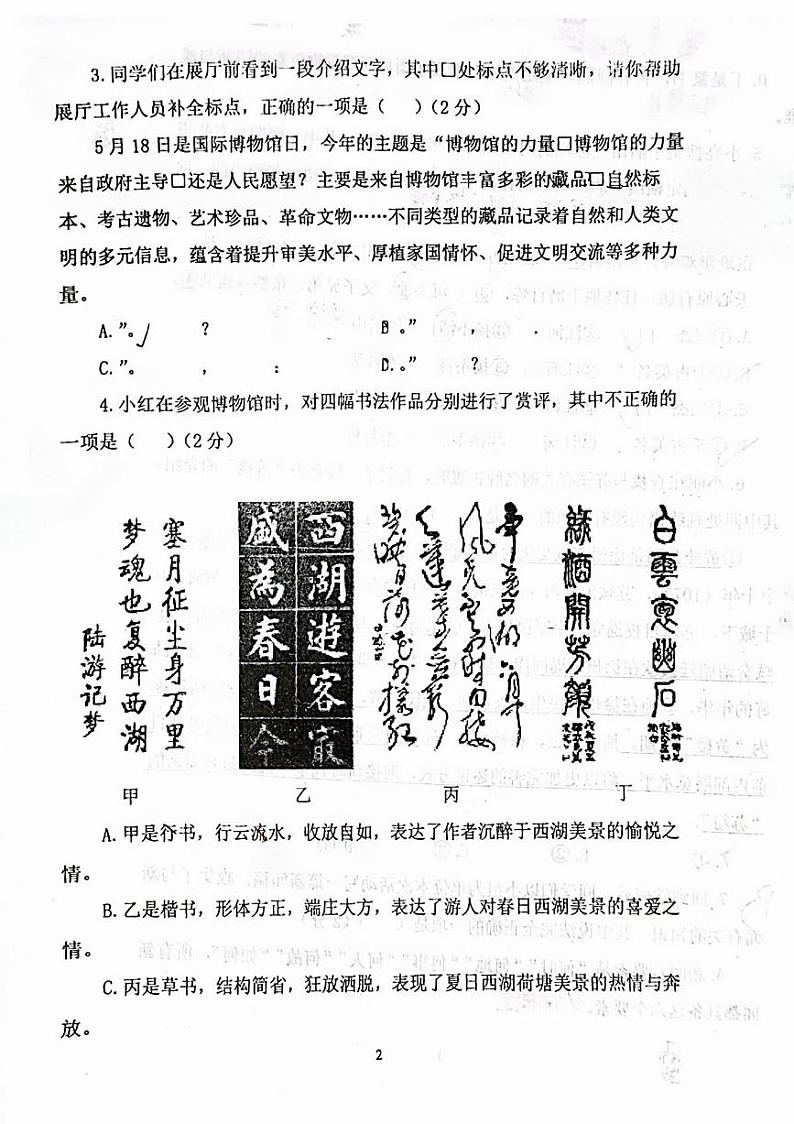 3.同学们在展厅前看到一段介绍文字，其中□处标点不够清晰，请你帮助
展厅工作人员补全标点，正确的一项是（ ）（2分）
5月18日是国际博物馆日，今年的主题是“博物馆的力量□博物馆的力量
来自政府主导□还是人民愿望？主要是来自博物馆丰富多彩的藏品□自然标
本、考古遗物、艺术珍品、革命文物……不同类型的藏品记录着自然和人类文
明的多元信息，蕴含着提升审美水平、厚植家国情怀、促进文明交流等多种力
量。
A.”。 ？ B 。” ， ．
C.”。 ， ： D.。” ？
4.小红在参观博物馆时，对四幅书法作品分别进行了赏评，其中不正确的
一项是（ ）（2分）
塞月征尘身万里
梦魂也复醉西湖
陆游记梦
西湖遊客最
盛為春日今
畢竟西湖六月中
风光不与四时同
接天蓮葉無窮
碧映日荷花别樣红
白雲意幽石
綠酒開芳顏
甲 乙 丙 丁
A.甲是行书，行云流水，收放自如，表达了作者沉醉于西湖美景的愉悦之
情。
B.乙是楷书，形体方正，端庄大方，表达了游人对春日西湖美景的喜爱之
情。
C.丙是草书，结构简省，狂放洒脱，表现了夏日西湖荷塘美景的热情与奔
放。
2